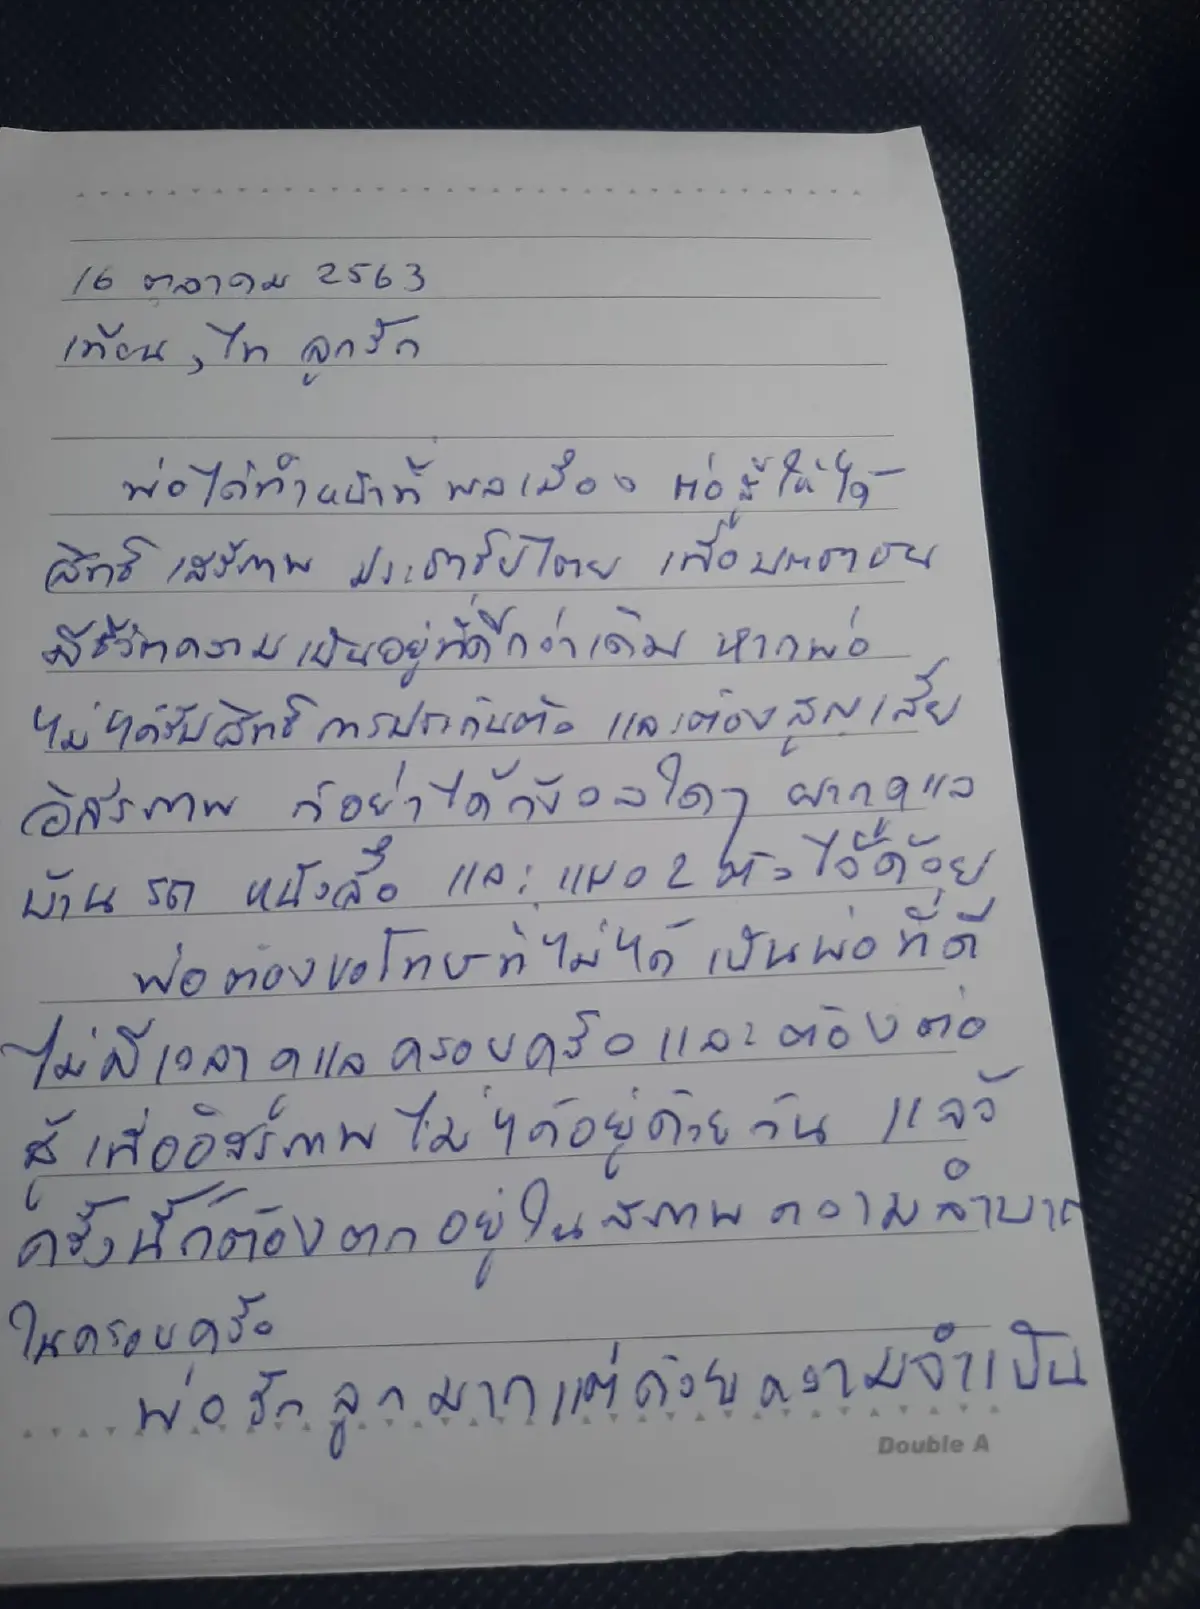 16 ตุลาคม 2563
เทียน, ไท ลูกรัก
พ่อได้ทำหน้าที่พลเมือง ต่อสู้ให้ได้
สิทธิ เสรีภาพ ประชาธิปไตย เพื่อประชาชน
มีชีวิตความเป็นอยู่ที่ดีกว่าเดิม หากพ่อ
ไม่ได้รับสิทธิการประกันตัว และต้องสูญเสีย
อิสรภาพ ก็อย่าได้กังวลใดๆ ฝากดูแล
บ้าน รถ หนังสือ และแมว 2 ตัว ไว้ด้วย
พ่อต้องขอโทษที่ไม่ได้เป็นพ่อที่ดี
ไม่มีเวลาดูแลครอบครัวและต้องต่อ
สู้เพื่ออิสรภาพไม่ได้อยู่ด้วยกัน แล้ว
ครั้งนี้ก็ต้องตกอยู่ในสภาพความลำบาก
ในครอบครัว
พ่อรักลูกมากแต่ด้วยความจำเป็น
Double A